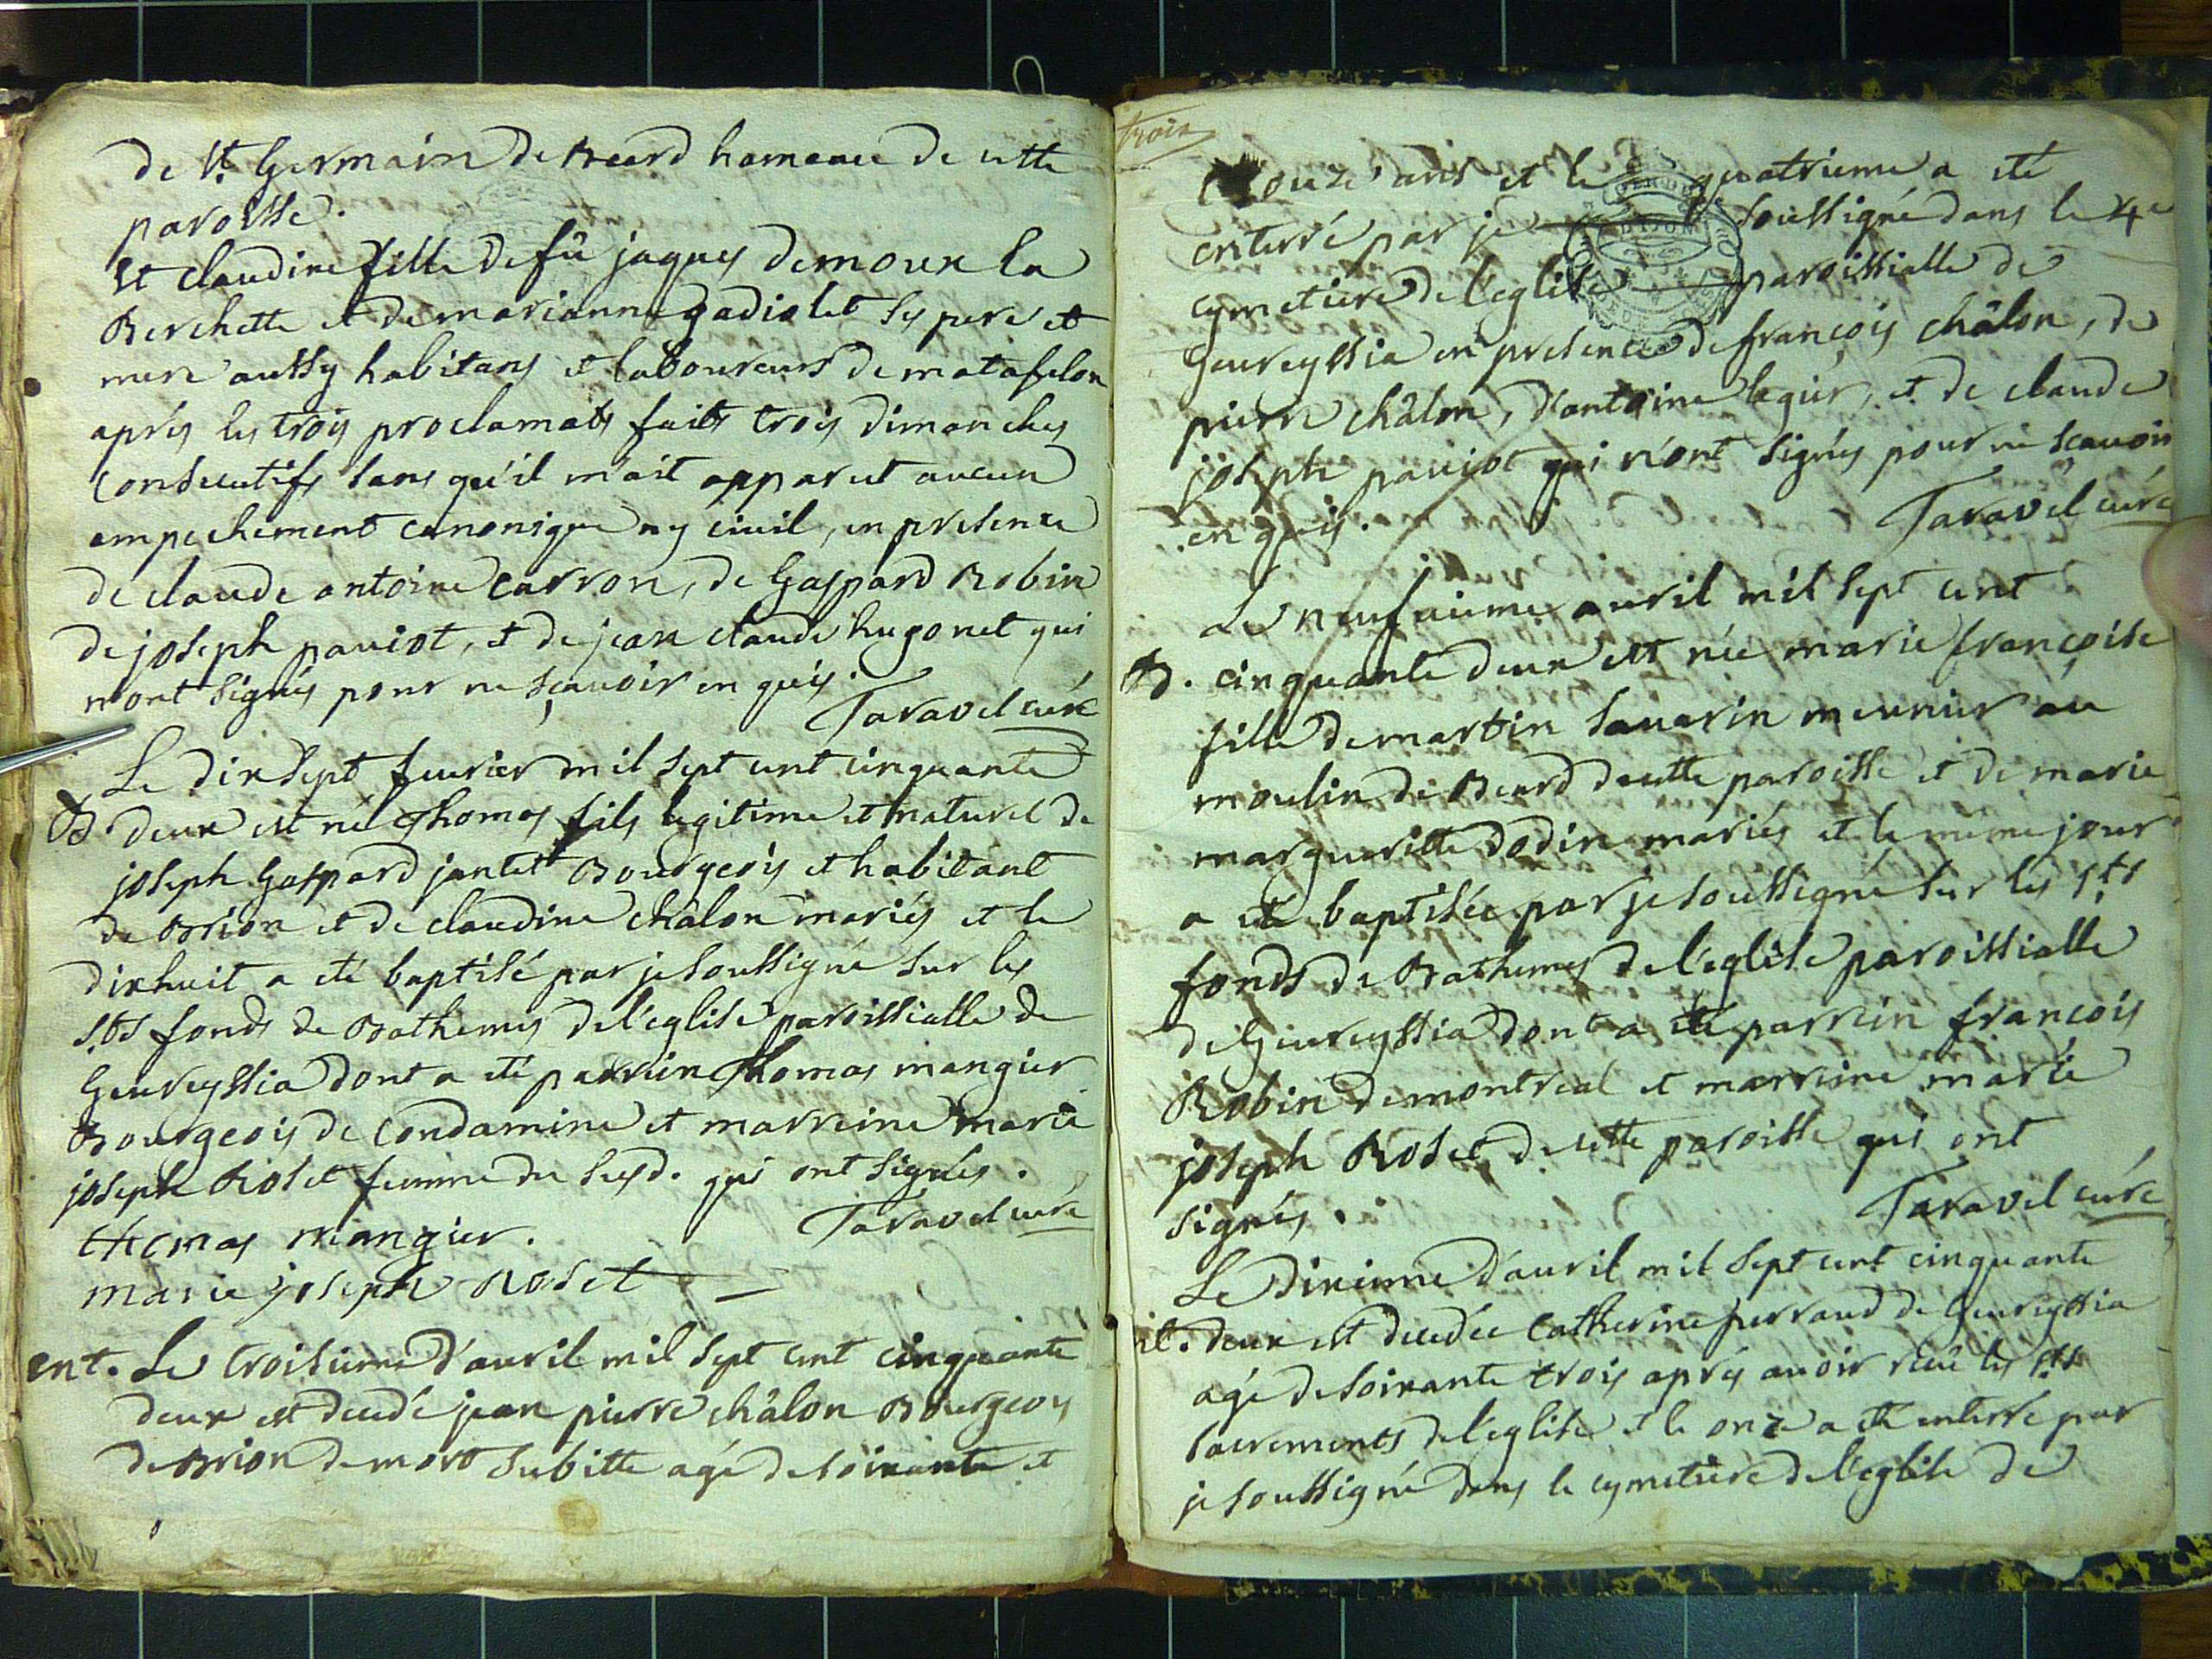 de St. Germain de Beard hameau de cette
paroisse.
Et claudine fille de fû jaques demoux la
Berchette et de marianne gadiolet ses pere et
mere aussy habitans et laboureurs de matafelon
aprés les trois proclamats faits trois dimanches
consecutifs sans qu'il m'ait apparut aucun
empechement canonique ny civil, en presence
de claude antoine carron, de Gaspard Robin
de joseph paviot, et de jean claude hugonet qui
n'ont signés pour ne sçavoir en quis.
Taravel curé
Le dix sept fevrier mil sept cent cinquante
B. deux est né Thomas fils legitime et naturel de
joseph Gaspard jantet Bourgeois et habitant
de Brion et de claudine châlon mariés et le
dixhuit a eté baptisé par je soussigné sur les
sts fonds de Bathemes de l'eglise paroissialle de
Geureyssia dont a eté parrein Thomas mangier
Bourgeois de Condamine et marreine marie
joseph Roset femme du susd. qui ont signés.
thomas mangier. Taravel curé
marie joseph Roset
ent. Le troisieme d'avril mil sept cent cinquante
deux est decedé jean pierre châlon Bourgeois
de Brion de mort subitte agé de soixante et
trois
douze ans et le quatrieme a eté
enterré par je soussigné dans le 4e
cymetiere de l'eglise paroissialle de
Geureyssia en presence de françois châlon, de
pierre châlon, d'antoine legier, et de claude
joseph paviot qui n'ont signés pour ne scavoir
enquis.
Taravel curé
Le neufvieme avril mil sept cent
B. cinquante deux est née marie françoise
fille de martin savarin meunier au
moulin de Beard de cette paroisse et de marie
margueritte dodin mariés et le meme jour
a eté baptisée par je soussigné sur les sts
fonds de Bathemes de l'eglise paroissialle
de Geureyssia dont a eté parrein françois
Robin de montreal et marreine marie
joseph Roset de cette paroisse qui ont
signés.
Taravel curé
Le dixieme d'avril mil sept cent cinquante
nt. deux est decedée Catherine perraud de Geureyssia
agé de soixante trois aprés avoir reçu les sts
sacrements de l'eglise et le onze a eté enterré par
je soussigné dans le cymetiere de l'eglise de